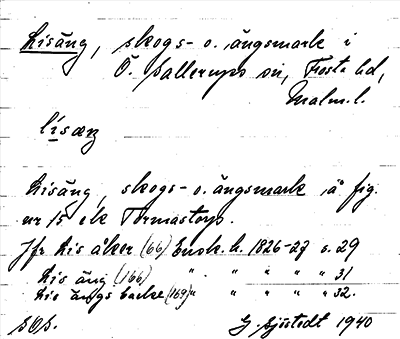 Lisäng, skogs- o. ängsmark i
Ö. Sallerups sn, Frosta hd,
Malm. l.
lísæŋ
Lisäng, skogs- o. ängsmark å fig.
nr 15 ek Tormastorp.
Jfr Lis åker (66) Ensk. h. 1826-27 s. 29
Lis äng (166) " " " " " 31
Lis ängs backe (169) " " " " " 32.
SOS. G. Sjöstedt 1940